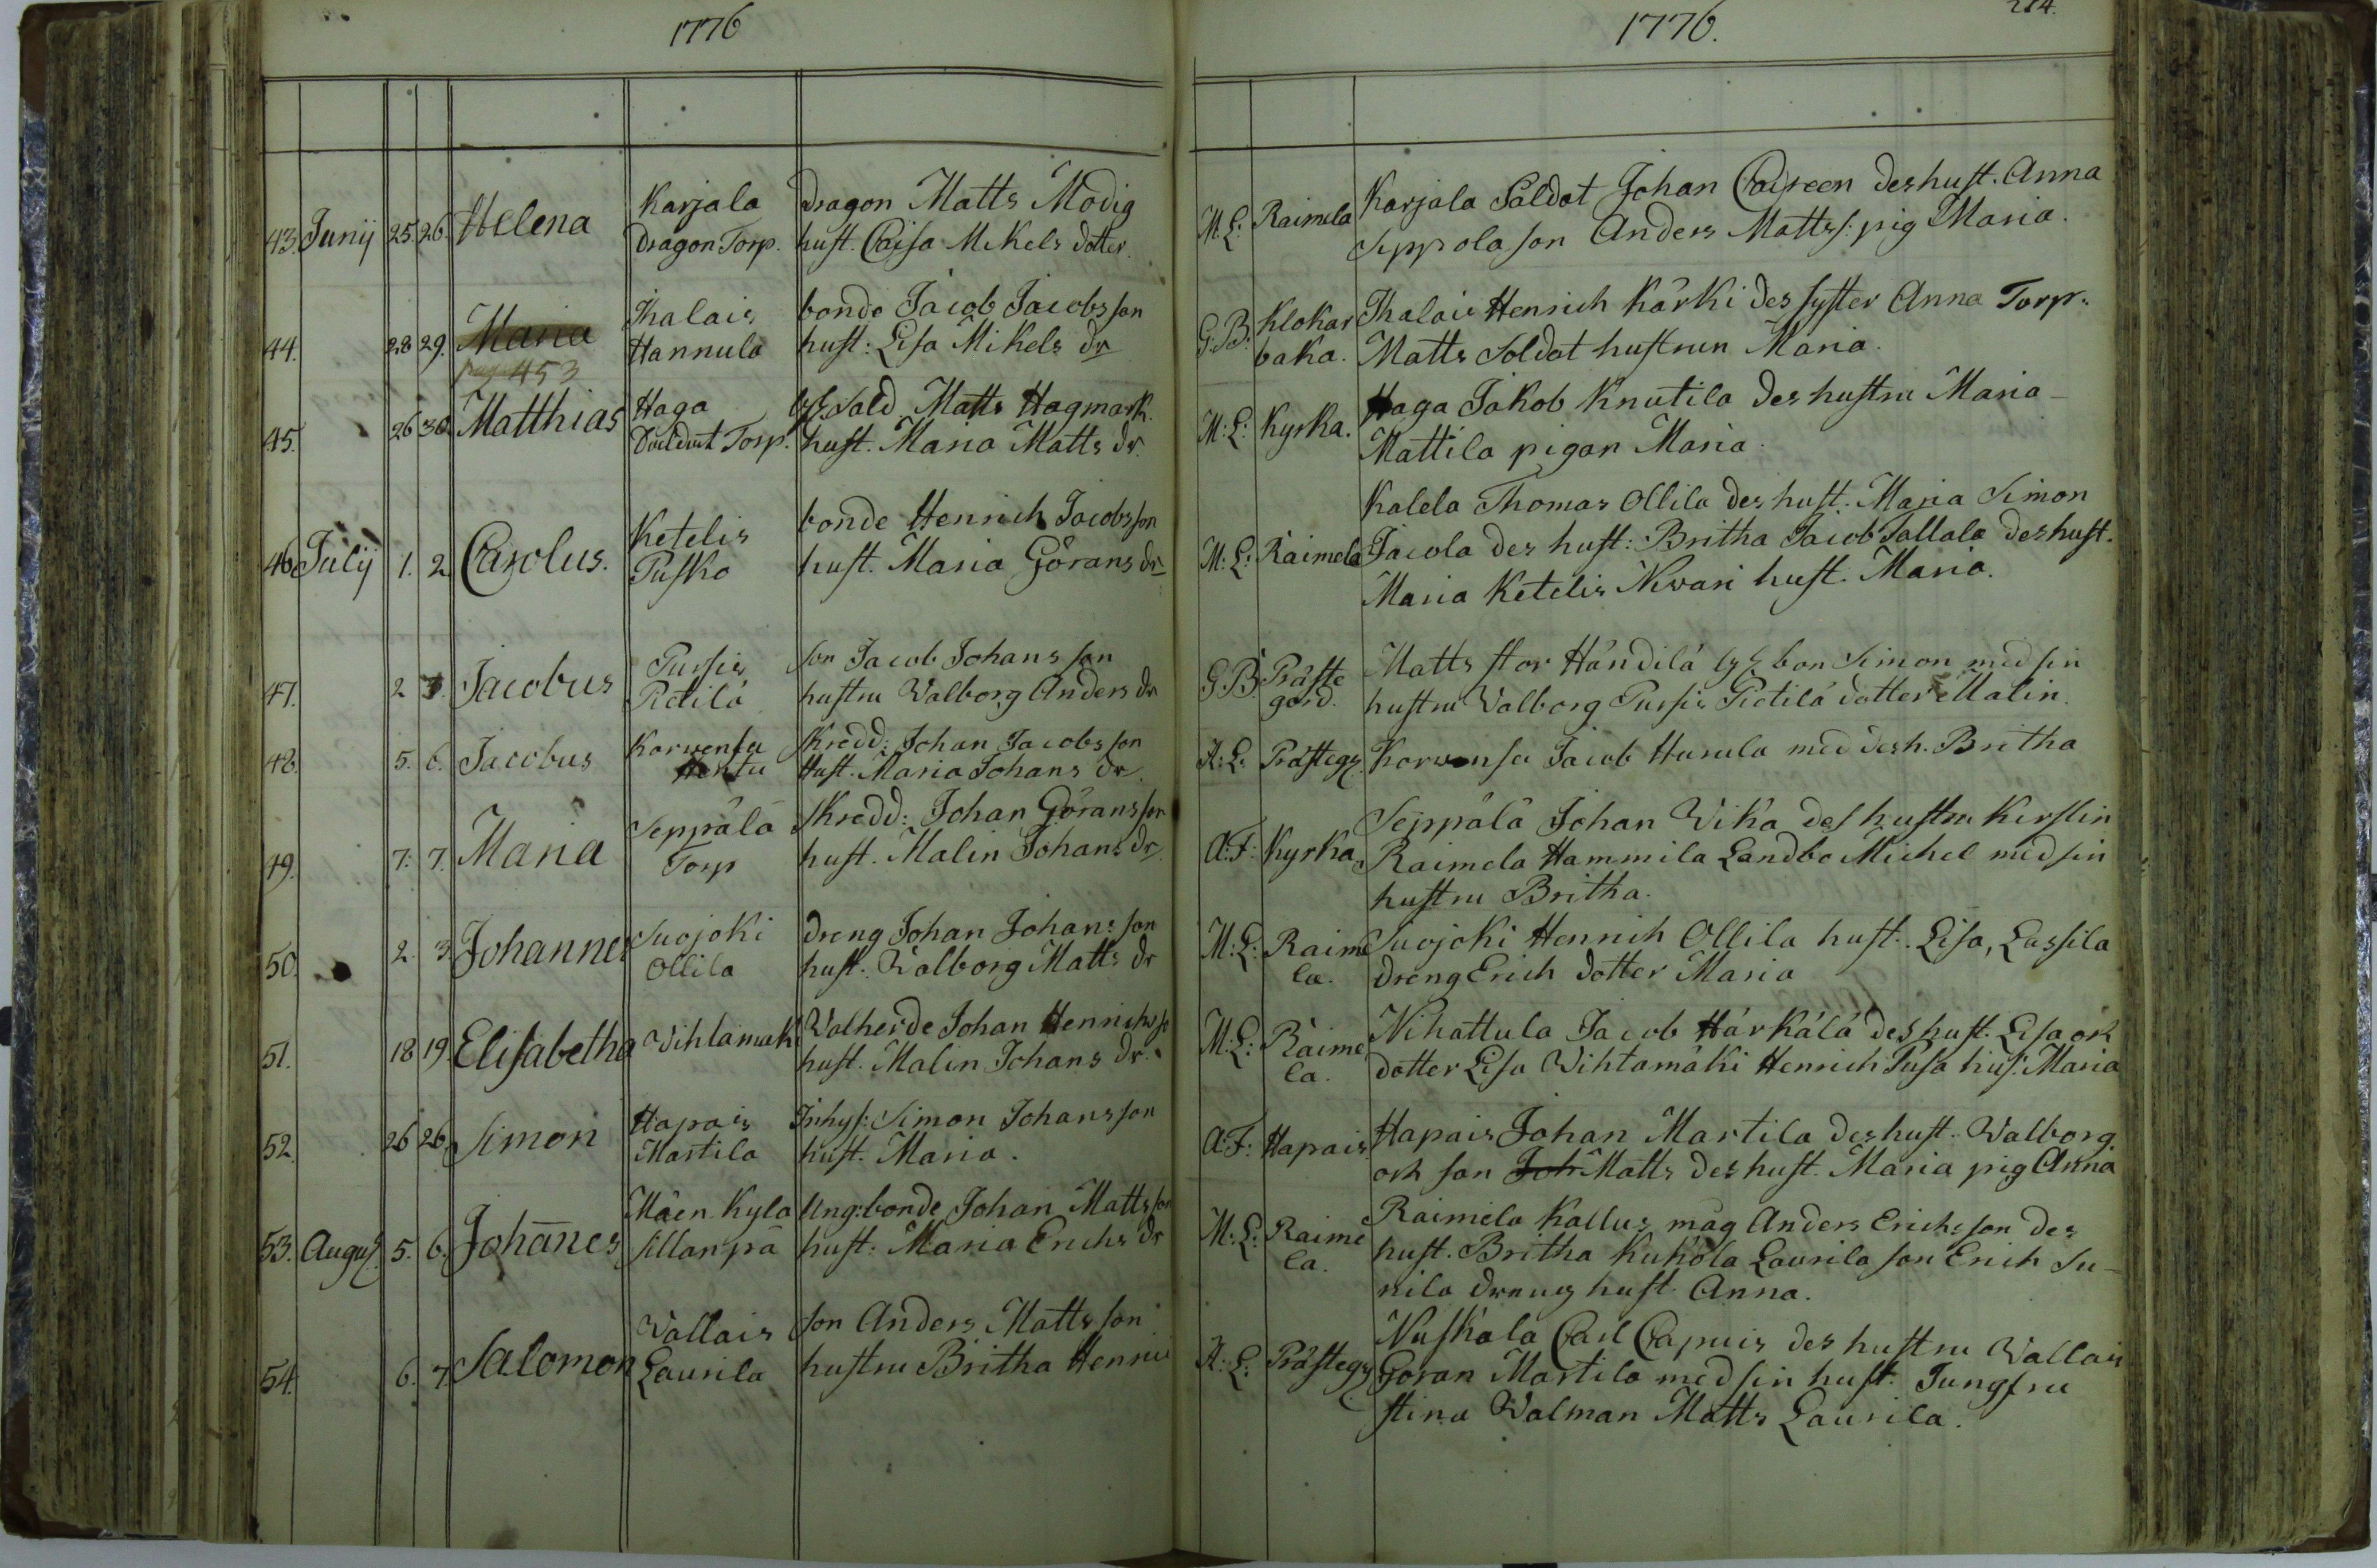 1776
43. Junij 25 26. Helena Karjala Dragon Matts Modig
Dragon Torp. hust. Caisa Mikels dotter.
44. 28 29. Maria Jhalais bonde Jacob Jacobsson
Hannula hust: Lisa Mikels dr
453
45. 26 30. Matthias Haga Sold Matts Hagmark.
Torp. hust. Maria Matts dr.
46. Julij 1. 2. Carolus. Ketelis bonde Henrich Jacobsson
Pusko hust. Maria Görans dr
47. 2 3. Jacobus Pursis son Jacob Johansson
Pietilä hustru Walborg Anders dr
48. 5. 6. Jacobus Korwensu Skredd: Johan Jacobsson
Hust. Maria Johans dr.
49. 7. 7. Maria Seppälä Skredd: Johan Göransson
Torp hust. Malin Johans dr
50. 2. 3. Johannes Suojoki dreng Johan Johansson
Ollila hust. Walborg Matts dr
51. 18 19. Elisabetha Wihlamäk Walherde Johan Henrichss
hust. Malin Johans dr.
52. 26 26. Simon Hapais Inhys: Simon Johansson
Martila hust. Maria.
53. Augus. 5. 6. Johanes Mäen Kyla Ung:bonde Johan Mattsson
Sillanpä hust. Maria Erichs dr
54. 6. 7. Salomon Wallais son Anders Mattsson
Laurila hustru Britha Henric
1776.
214.
M: L: Raimela Karjala Soldat Johan des hust. Anna
Seppola son Anders Mattss: pig Maria.
G: B: Klokar Jhalais Henrich Kärki des syster Anna Torp.
baka. Matts Soldat hustrun Maria.
M: L: Kyrka. Haga Jakob Knutila des hustru Maria
Mattila pigan Maria.
Kalela Thomas Ollila des hust. Maria Simon
M: L: Raimela Jacola des hust: Britha Jacob Tallala des hust.
Maria Ketelis Niwari hust. Maria.
G: B: Präste Matts stor Händilä bon Simon med sin
gård. hustru Walborg Pursis Pietilä dotter Malin.
A: L: Prästeg. Korwensu Jacob Hurula med des h. Britha
Seppälä Johan Wikä des hustru Kirstin
A: F: Kyrka Raimela Hammila Landbo Michel med sin
hustru Britha.
M: L: Raime Suojoki Henrich Ollila hust. Lisa, Lassila
la. dreng Erich dotter Maria
M: L: Raime Nihattula Jacob Härkälä des hust. Lisa och
la. dotter Lisa Wihtamäki Henrich Pusa hus: Maria
A: F: Hapais Hapais Johan Martila des hust. Walborg
och son Joh Matts des hust. Maria pig Anna
Raimela Kallus måg Anders Erichsson des
M: L: Raime hust. Britha Kukola Laurila son Erich Su-
la. nila dreng hust. Anna.
Nuskala Carl des hustru Wallais
A: L: Prästeg. Göran Martila med sin hust. Jungfru
Stina Walman Matts Laurila.